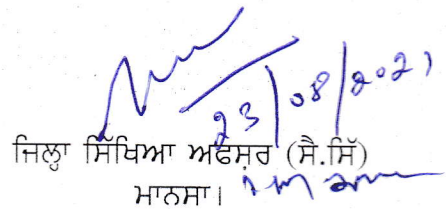 23/08/2021
ਜਿਲ੍ਹਾ ਸਿੱਖਿਆ ਅਫਸਰ (ਸੈ.ਸਿੱ)
ਮਾਨਸਾ।